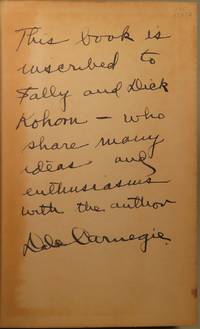 This book is
inscribed to
Sally and Dick
Kohorn — who
share many
ideas and
enthusiasms
with the author
Dale Carnegie